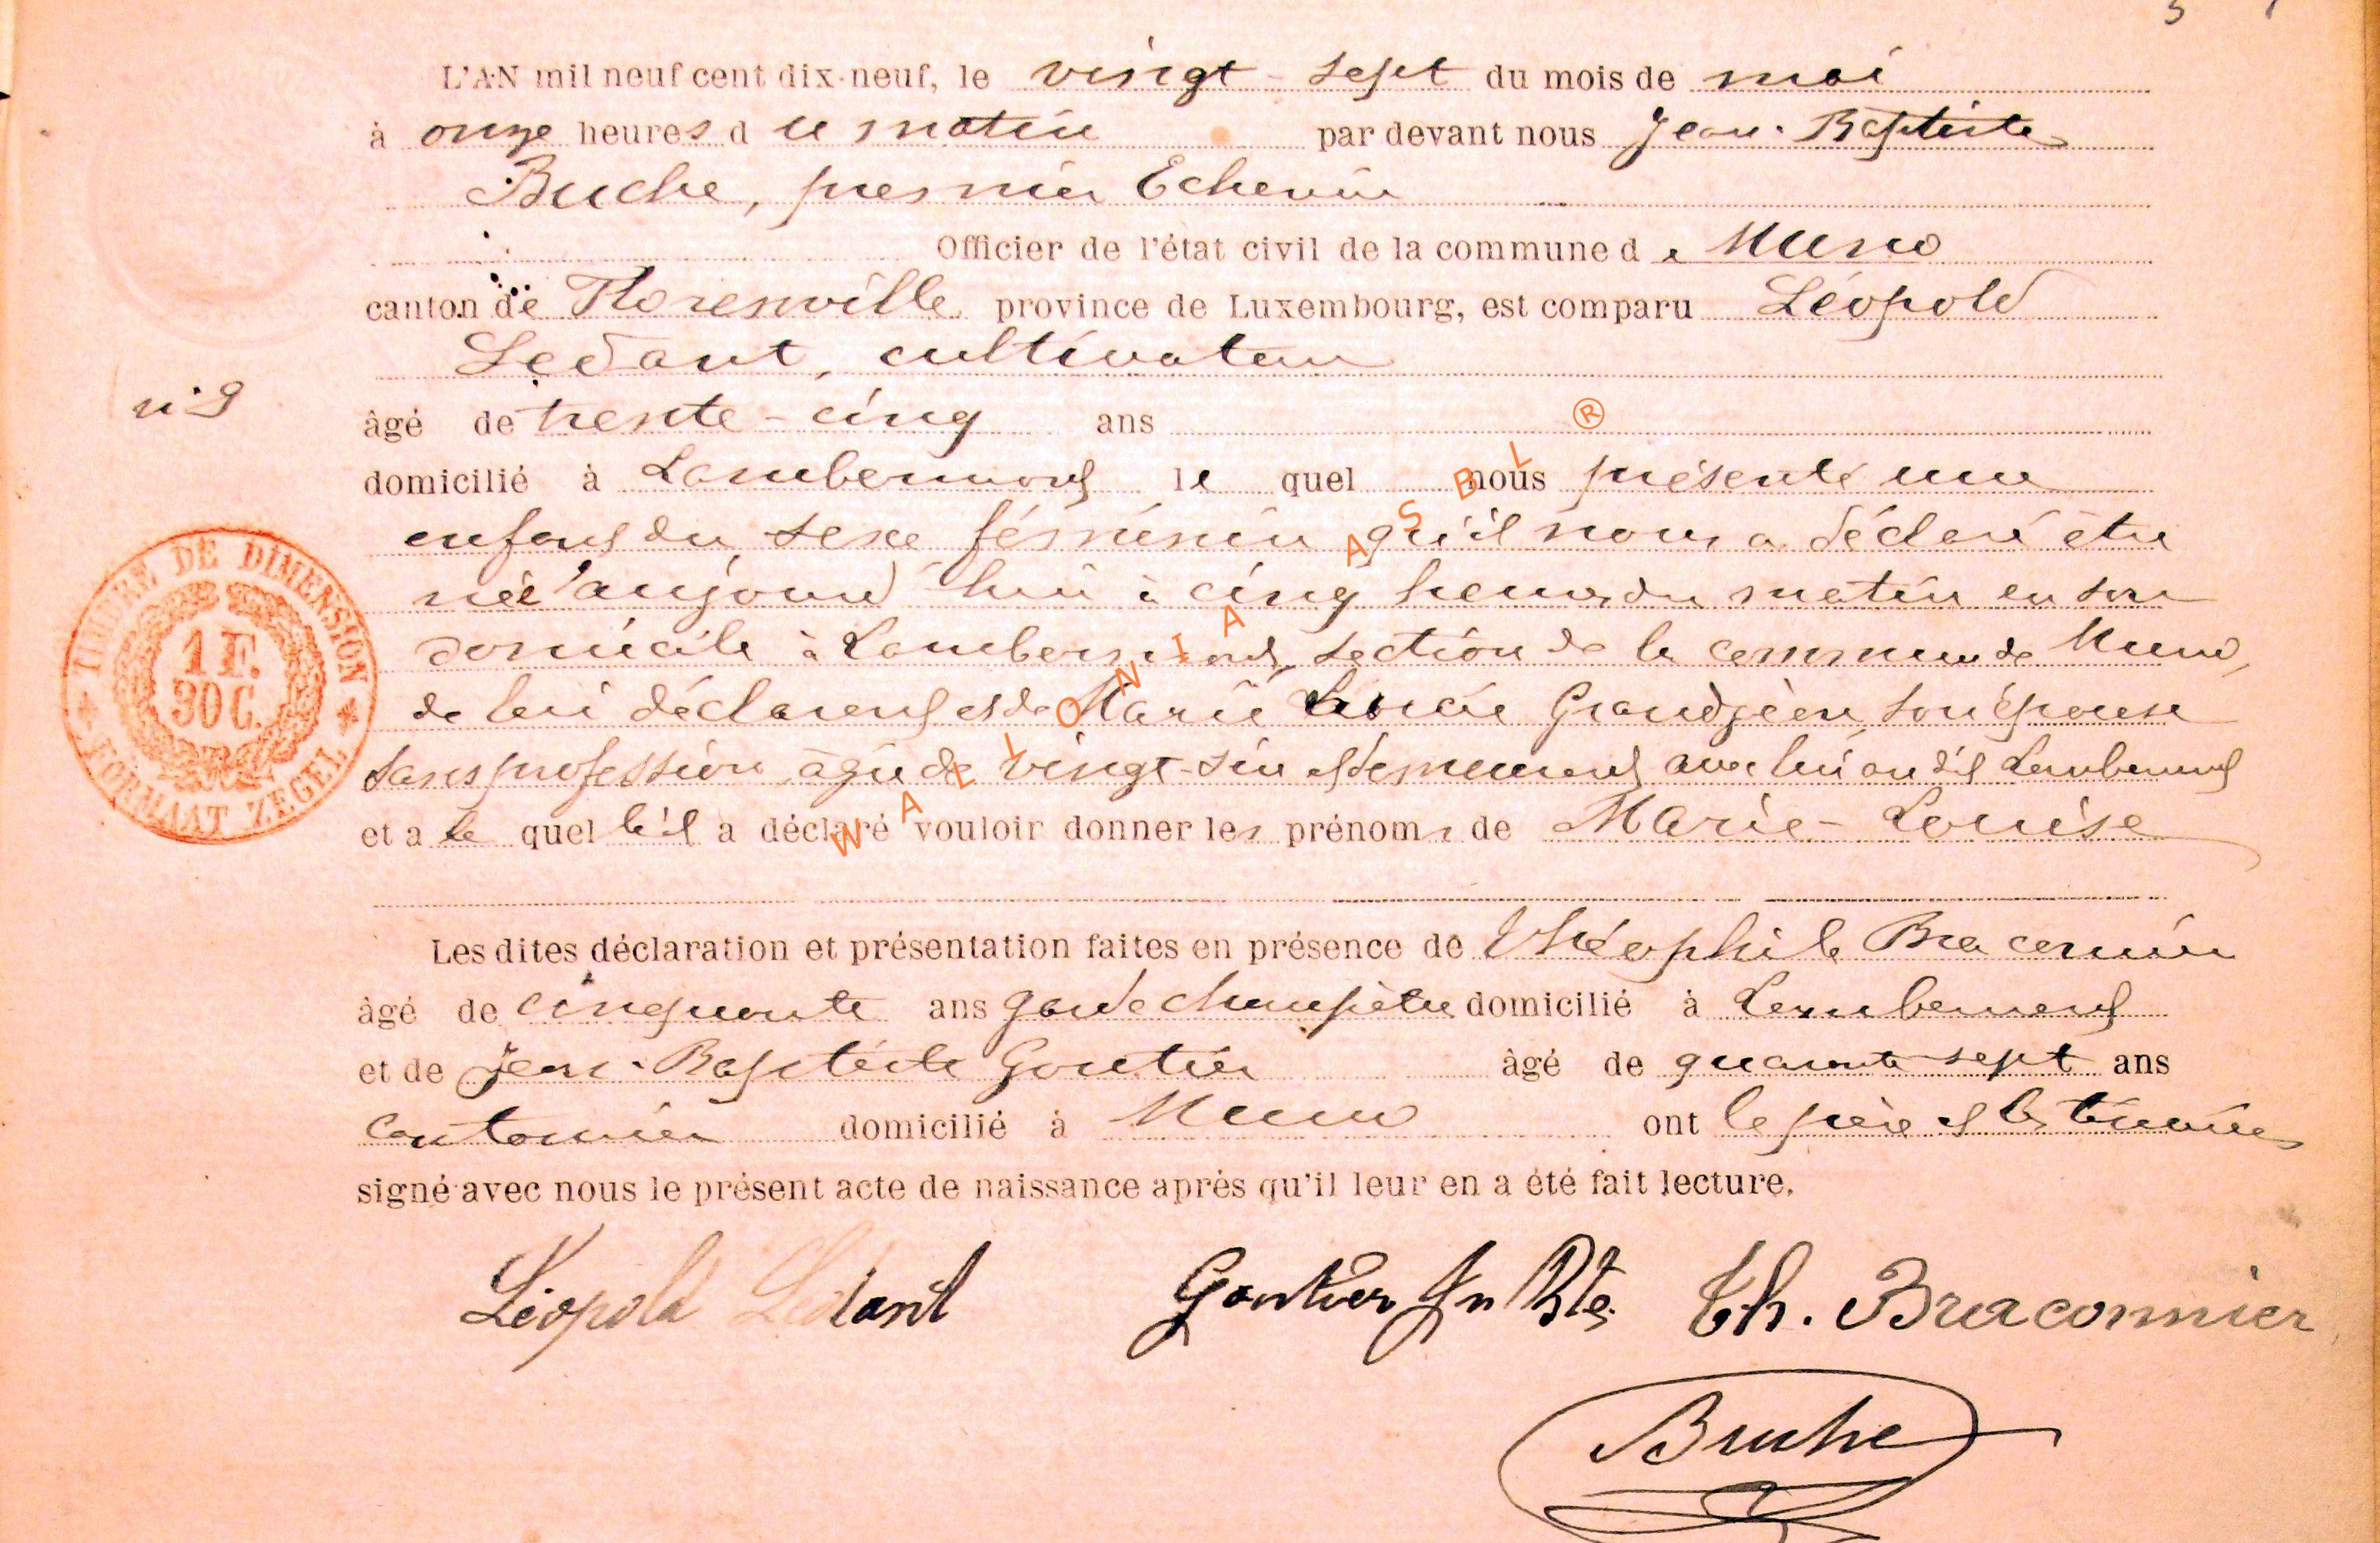 L'AN mil neuf cent dix-neuf, le vingt-sept du mois de mai
à onze heures du matin par devant nous Jean-Baptiste
Buche, premier Echevin
Officier de l'état civil de la commune de Muno
canton de Florenville province de Luxembourg, est comparu Léopold
Ledant, cultivateur
n° 9
âgé de trente-cinq ans
domicilié à Lambermont le quel nous présenté une
enfant du sexe féminin qu'il nous a déclaré être
née aujourd'hui à cinq heures du matin en son
domicile à Lambermont, section de la commune de Muno,
de lui déclarant et de Marie Grandjean, son épouse
sans profession, âgée de vingt-six et demeurant avec lui au dit Lambermont
et a le quel l'il a déclaré vouloir donner les prénoms de Marie-Louise
Les dites déclaration et présentation faites en présence de Théophile Braconnier
âgé de cinquante ans garde champêtre domicilié à Lambermont
et de Jean-Baptiste Gontier âgé de quarante-sept ans
cantonnier domicilié à Muno ont le père et les témoins
signé avec nous le présent acte de naissance après qu'il leur en a été fait lecture.
Léopold Ledant Gontier Jn Bte Th. Braconnier
Buche
TIMBRE DE DIMENSION
1 F.
30 C.
FORMAAT ZEGEL
WALLONIA ASBL ®